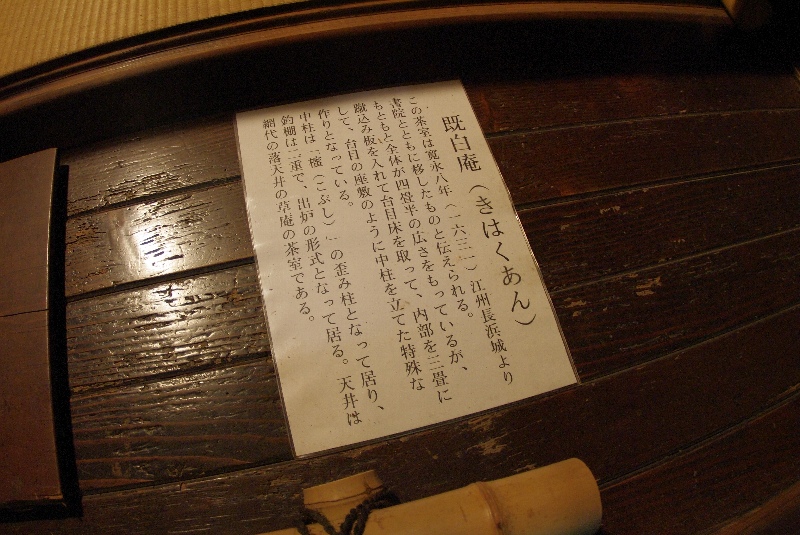 既白庵（きはくあん）
この茶室は寛永八年（一六三一）江州長浜城より
書院とともに移したものと伝えられる。
もともと全体が四畳半の広さをもっているが、
蹴込み板を入れて台目床を取って、内部を三畳に
して、台目の座敷のように中柱を立てた特殊な
作りとなっている。
中柱は「榁（こぶし）」の歪み柱となって居り、
釣棚は二重で、出炉の形式となって居る。天井は
網代の落天井の草庵の茶室である。